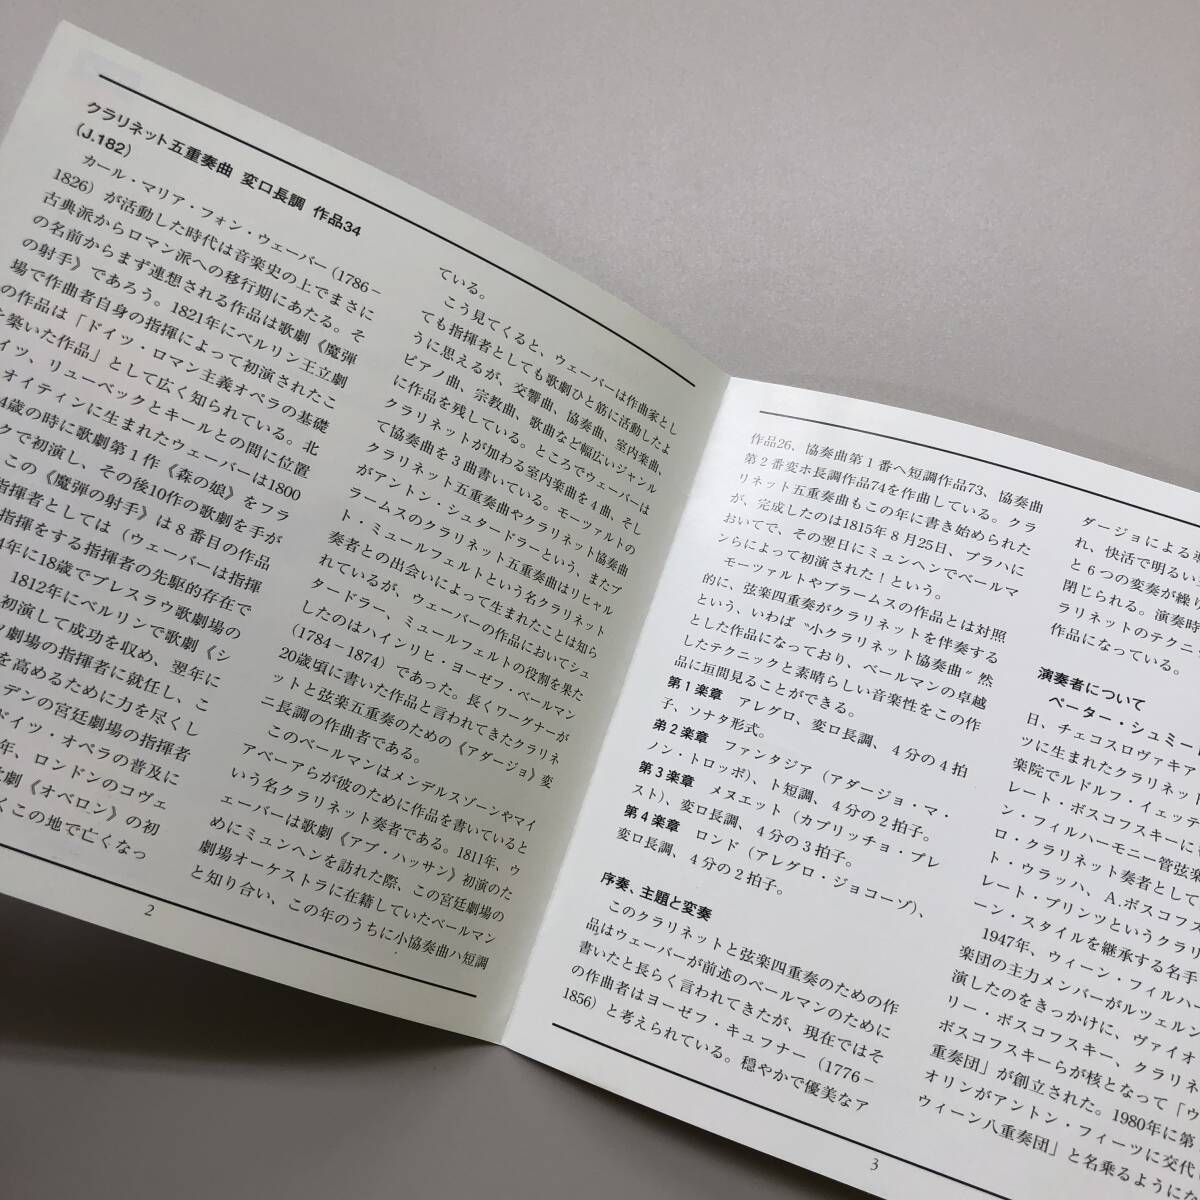 クラリネット五重奏曲 変ロ長調 作品34
(J.182)
カール・マリア・フォン・ウェーバー（1786−
1826）が活動した時代は音楽史の上でまさに
古典派からロマン派への移行期にあたる。そ
の名前からまず連想される作品は歌劇《魔弾
の射手》であろう。1821年にベルリン王立劇
場で作曲者自身の指揮によって初演されたこ
の作品は「ドイツ・ロマン主義オペラの基礎
を築いた作品」として広く知られている。北
イツ、リューベックとキールとの間に位置
オイティンに生まれたウェーバーは1800
4歳の時に歌劇第１作《森の娘》をフラ
クで初演し、その後10作の歌劇を手が
この《魔弾の射手》は８番目の作品
指揮者としては（ウェーバーは指揮
指揮をする指揮者の先駆的存在で
4年に18歳でブレスラウ歌劇場の
1812年にベルリンで歌劇《シ
初演して成功を収め、翌年に
劇場の指揮者に就任し、こ
を高めるために力を尽くし
デンの宮廷劇場の指揮者
ドイツ・オペラの普及に
年、ロンドンのコヴェ
劇《オベロン》の初
くこの地で亡くなっ
ている。
こう見てくると、ウェーバーは作曲家とし
ても指揮者としても歌劇ひと筋に活動したよ
うに思えるが、交響曲、協奏曲、室内楽曲、
ピアノ曲、宗教曲、歌曲など幅広いジャンル
に作品を残している。ところでウェーバーは
クラリネットが加わる室内楽曲を４曲、そし
て協奏曲を３曲書いている。モーツァルトの
クラリネット五重奏曲やクラリネット協奏曲
がアントン・シュタードラーという、またブ
ラームスのクラリネット五重奏曲はリヒャル
ト・ミュールフェルトという名クラリネット
奏者との出会いによって生まれたことは知ら
れているが、ウェーバーの作品においてシュ
タードラー、ミュールフェルトの役割を果た
したのはハインリヒ・ヨーゼフ・ベールマン
（1784−1874）であった。長くワーグナーが
20歳頃に書いた作品と言われてきたクラリネ
ットと弦楽五重奏のための《アダージョ》変
ニ長調の作曲者である。
このベールマンはメンデルスゾーンやマイ
アベーアらが彼のために作品を書いていると
いう名クラリネット奏者である。1811年、ウ
ェーバーは歌劇《アブ・ハッサン》初演のた
めにミュンヘンを訪れた際、この宮廷劇場の
劇場オーケストラに在籍していたベールマン
と知り合い、この年のうちに小協奏曲ハ短調
2
作品26、協奏曲第１番ヘ短調作品73、協奏曲
第２番変ホ長調作品74を作曲している。クラ
リネット五重奏曲もこの年に書き始められた
が、完成したのは1815年８月25日、プラハに
おいてで、その翌日にミュンヘンでベールマ
ンらによって初演された！という。
モーツァルトやブラームスの作品とは対照
的に、弦楽四重奏がクラリネットを伴奏する
という、いわば〝小クラリネット協奏曲〟然
とした作品になっており、ベールマンの卓越
したテクニックと素晴らしい音楽性をこの作
品に垣間見ることができる。
第１楽章 アレグロ、変ロ長調、４分の４拍
子、ソナタ形式。
第２楽章 ファンタジア（アダージョ・マ・
ノン・トロッポ）、ト短調、４分の２拍子。
第３楽章 メヌエット（カプリッチョ・プレ
スト）、変ロ長調、４分の３拍子。
第４楽章 ロンド（アレグロ・ジョコーゾ）、
変ロ長調、４分の２拍子。
序奏、主題と変奏
このクラリネットと弦楽四重奏のための作
品はウェーバーが前述のベールマンのために
書いたと長らく言われてきたが、現在ではそ
の作曲者はヨーゼフ・キュフナー（1776−
1856）と考えられている。穏やかで優美なア
ダージョによる
れ、快活で明るい
と６つの変奏が繰り
閉じられる。演奏時
ラリネットのテクニ
作品になっている。
演奏者について
ペーター・シュミー
日、チェコスロヴァキア
ツに生まれたクラリネット
楽院でルドルフ・イェッテ
レート・ボスコフスキーに
ン・フィルハーモニー管弦楽
ロ・クラリネット奏者として
ト・ウラッハ、A.ボスコフス
レート・プリンツというクラリ
ーン・スタイルを継承する名手
1947年、ウィーン・フィルハ
楽団の主力メンバーがルツェルン
演したのをきっかけに、ヴァイオ
リー・ボスコフスキー、クラリネ
ボスコフスキーらが核となって「ウ
重奏団」が創立された。1980年に第
オリンがアントン・フィーツに交代
ウィーン八重奏団」と名乗るようにな
3